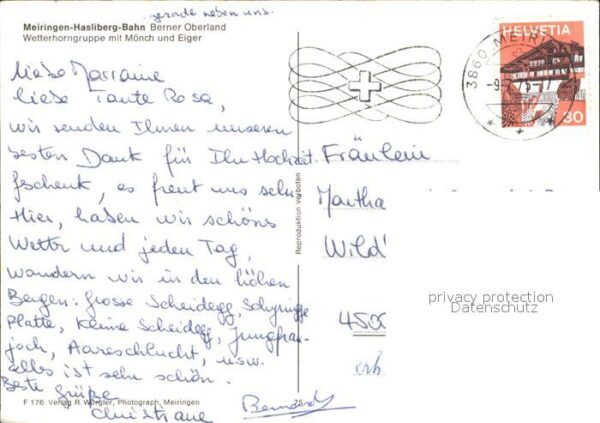 gerade neben uns.
Meiringen-Hasliberg-Bahn Berner Oberland
Wetterhorngruppe mit Mönch und Eiger
liebe Marraine
liebe Tante Rosa,
wir senden Ihnen unseren
besten Dank für Ihr Hochzeit
geschenk, es freut uns sehr
Hier, haben wir schöns
Wettr und jeden Tag,
wandern wir in den höhen
Bergen: Grosse Scheidegg, Schynige
Platte, Kleine Scheidegg, Jungfrau-
joch, Aareschlucht, usw.
alles ist sehr schön.
Beste Grüße
Christiane Bernard
F 176 Verlag R. Würgler, Photograph, Meiringen
75
Reproduktion verboten
3860 MEIRINGEN
HELVETIA
30
Fräulein
Martha
Wild
privacy protection
Datenschutz